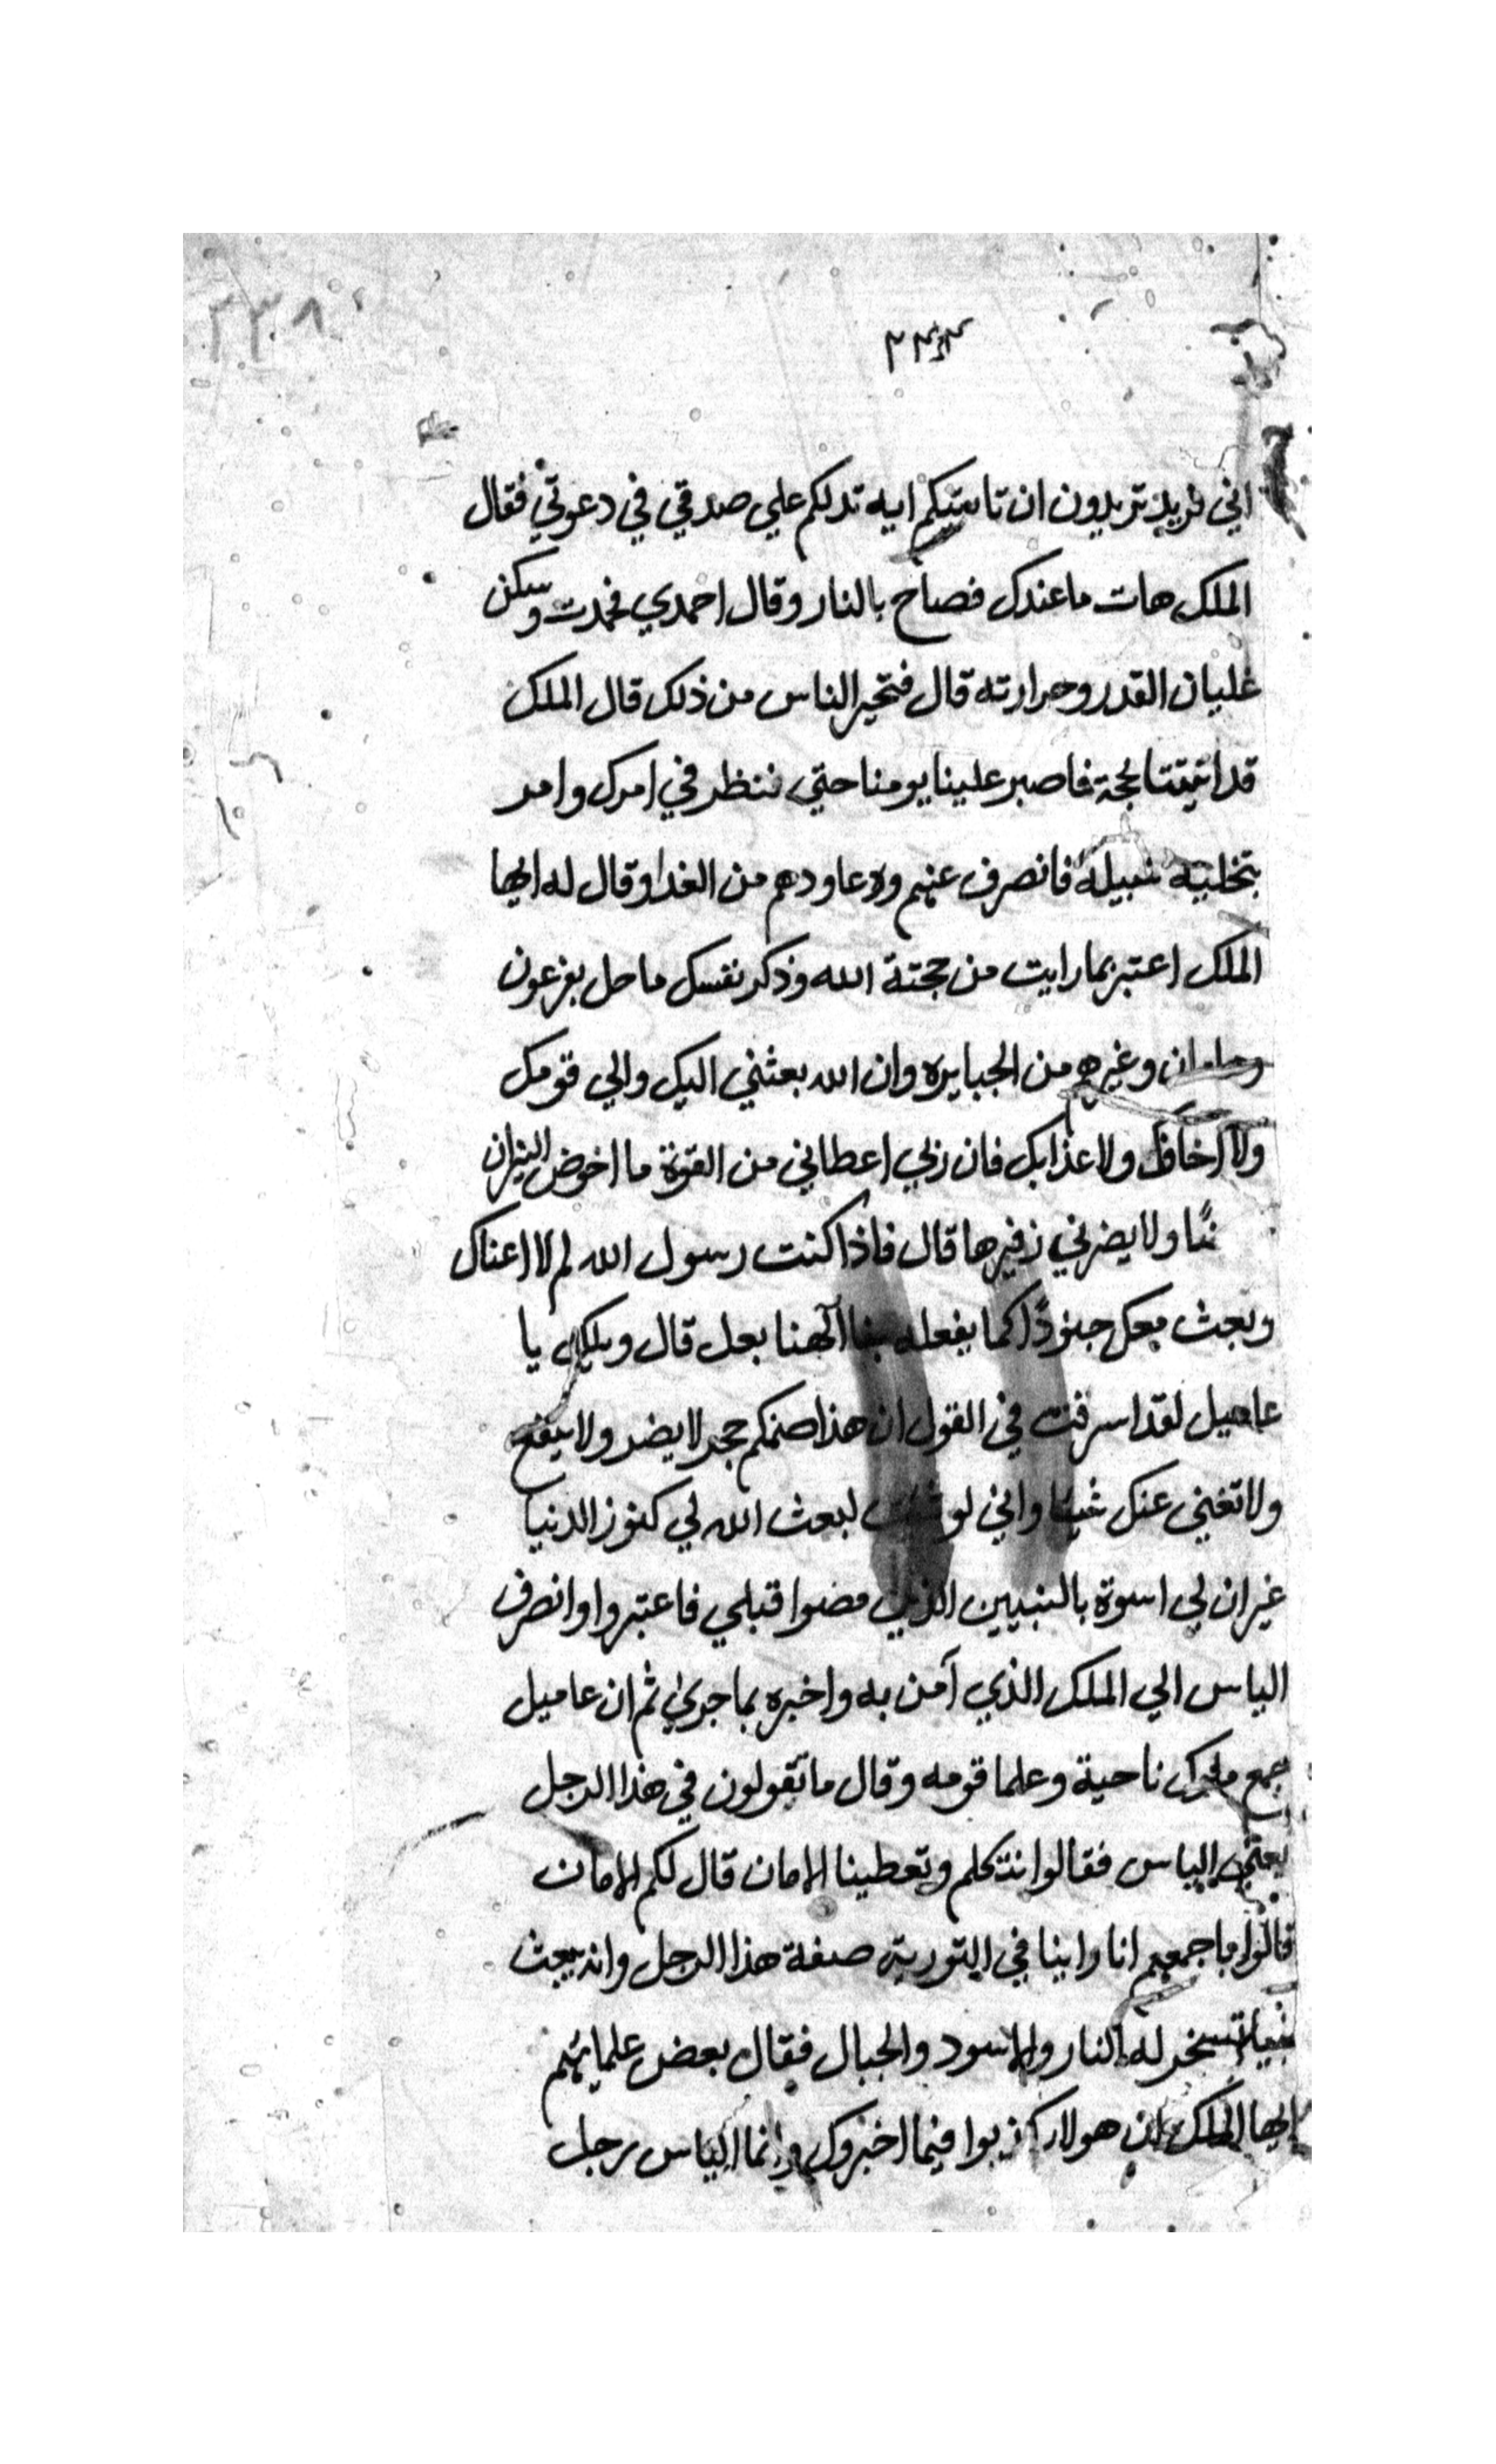 ٢٣٨
٢٣٣
اني فريد تريدون ان تاتيكم ايه تدلكم علي صدقي في دعوتي فقال
الملك هات ما عندك فصاح بالنار وقال احمدي فخمدت وسكن
غليان القدر وحرارته قال فتحير الناس من ذلك قال الملك
قد اتيتنا بحجة فاصبر علينا يومنا حتي ننظر في امرك وامر
بتخلية سبيله فانصرف عنهم وعاودهم من الغد وقال له ايها
الملك اعتبر بما رايت من حجتة الله وذكر نفسك ما حل بفرعون
وهامان وغيرهم من الجبايره وان الله بعثني اليك والي قومك
ولا اخافك ولا عذابك فان ربي اعطاني من القوة ما اخوض النيران
ولا يضرني زفيرها قال فاذا كنت رسول الله لم لا اغناك
وبعث معك جنودًا كما يفعله بنا آلهنا بعل قال ويلك يا
عاميل لقد اسرفت في القول ان هذا صنمكم حجر لا يضر ولا ينفع
ولا تغني عنك شيئا واني لو شئت لبعث الله لي كنوز الدنيا
غير ان لي اسوة بالنبيين الذين مضوا قبلي فاعتبروا وانصرف
الياس الي الملك الذي آمن به واخبره بما جري ثم ان عاميل
جمع ملوك ناحية وعلما قومه وقال ما تقولون في هذا الرجل
يعني الياس فقالوا نتكلم وتعطينا الامان قال لكم الامان
قالوا باجمعهم انا راينا في التورية صفة هذا الرجل وانه يبعث
نبيا تسخر له النار والاسود والجبال فقال بعض علمايهم
ايها الملك ان هولاء كذبوا فيما اخبروك وانما الياس رجل